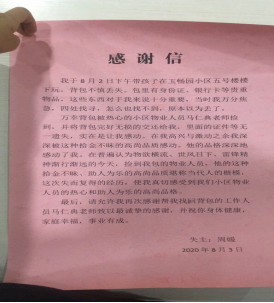 感谢信
我于8月2日下午带孩子在玉畅园小区五号楼楼
下玩，背包不慎丢失，包里有身份证、银行卡等贵重
物品，这些东西对于我来说十分重要，当时我万分焦
急，四处找寻，怎么也找不到，原本以为丢了。
万幸背包被热心的小区物业人员马仁典老师捡
到，并将背包完好无损的交还给我，里面的证件等无
一遗失，实在是让我感动。在我高兴与激动之余我深
深被这种拾金不昧的高尚品格感动。他的品格深深地
感动了我，在普遍认为物欲横流，世风日下，雷锋精
神渐行渐远的今天，捡到我包的物业人员，他的这种
拾金不昧，助人为乐的高尚品质堪称当代人的楷模。
这次失而复得的经历，使我真切感受到我们小区物业
人员的热心和助人为乐的高尚品格。
最后，请允许我再次感谢帮我找回背包的工作人
员马仁典老师致以最诚挚的感谢，并祝你身体健康，
家庭幸福，事业有成。
失主：周媛
2020年8月3日